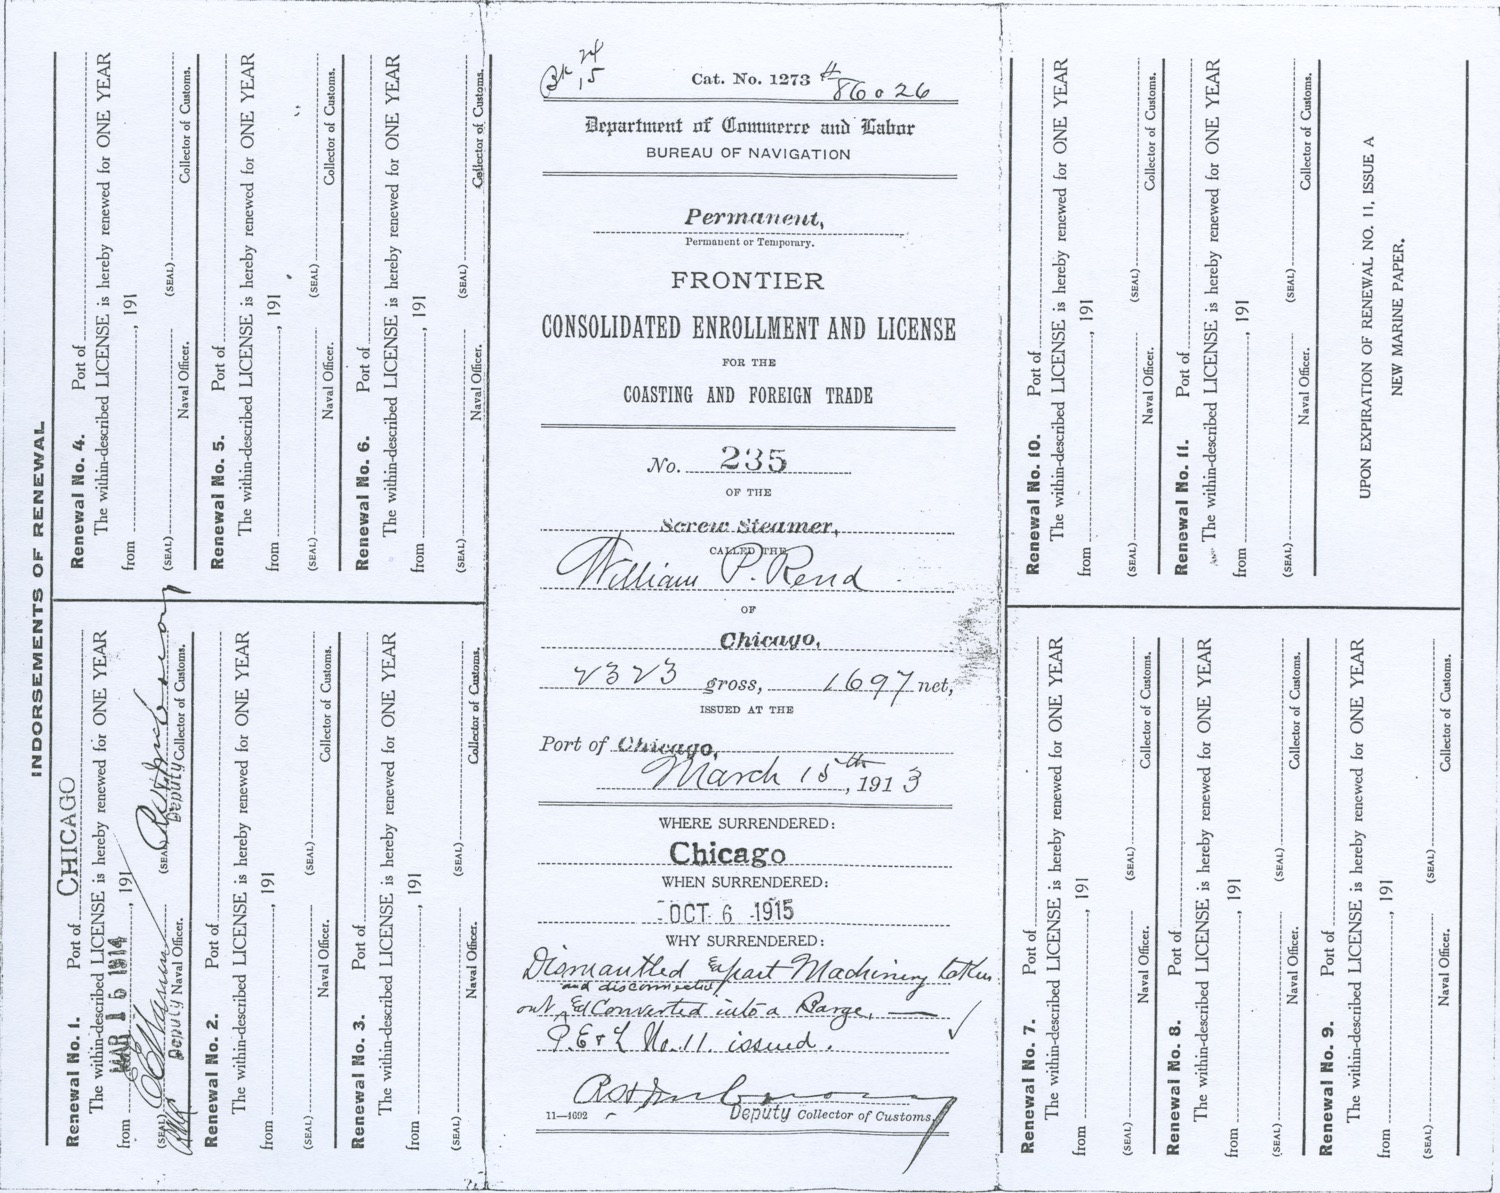 INDORSEMENTS OF RENEWAL
Renewal No. 1. Port of CHICAGO
The within-described LICENSE is hereby renewed for ONE YEAR
from MAR 16 1914, 191
(SEAL) (SEAL)
Deputy Naval Officer. Deputy Collector of Customs.
Renewal No. 2. Port of
The within-described LICENSE is hereby renewed for ONE YEAR
from , 191
(SEAL) (SEAL)
Naval Officer. Collector of Customs.
Renewal No. 3. Port of
The within-described LICENSE is hereby renewed for ONE YEAR
from , 191
(SEAL) (SEAL)
Naval Officer. Collector of Customs.
Renewal No. 4. Port of
The within-described LICENSE is hereby renewed for ONE YEAR
from , 191
(SEAL) (SEAL)
Naval Officer. Collector of Customs.
Renewal No. 5. Port of
The within-described LICENSE is hereby renewed for ONE YEAR
from , 191
(SEAL) (SEAL)
Naval Officer. Collector of Customs.
Renewal No. 6. Port of
The within-described LICENSE is hereby renewed for ONE YEAR
from , 191
(SEAL) (SEAL)
Naval Officer. Collector of Customs.
Bk 24
15
Cat. No. 1273 # 86026
Department of Commerce and Labor
BUREAU OF NAVIGATION
Permanent,
Permanent or Temporary.
FRONTIER
CONSOLIDATED ENROLLMENT AND LICENSE
FOR THE
COASTING AND FOREIGN TRADE
No. 235
OF THE
Screw Steamer,
CALLED THE
William P. Rend
OF
Chicago,
2323 gross, 1697 net,
ISSUED AT THE
Port of Chicago,
March 15th, 1913
WHERE SURRENDERED:
Chicago
WHEN SURRENDERED:
OCT 6 1915
WHY SURRENDERED:
Dismantled & part Machinery taken
and disconnected
out, & Converted into a Barge,
P. E & L No. 11. issued.
11—4692 Deputy Collector of Customs.
Renewal No. 7. Port of
The within-described LICENSE is hereby renewed for ONE YEAR
from , 191
(SEAL) (SEAL)
Naval Officer. Collector of Customs.
Renewal No. 8. Port of
The within-described LICENSE is hereby renewed for ONE YEAR
from , 191
(SEAL) (SEAL)
Naval Officer. Collector of Customs.
Renewal No. 9. Port of
The within-described LICENSE is hereby renewed for ONE YEAR
from , 191
(SEAL) (SEAL)
Naval Officer. Collector of Customs.
Renewal No. 10. Port of
The within-described LICENSE is hereby renewed for ONE YEAR
from , 191
(SEAL) (SEAL)
Naval Officer. Collector of Customs.
Renewal No. 11. Port of
The within-described LICENSE is hereby renewed for ONE YEAR
from , 191
(SEAL) (SEAL)
Naval Officer. Collector of Customs.
UPON EXPIRATION OF RENEWAL NO. 11, ISSUE A
NEW MARINE PAPER.